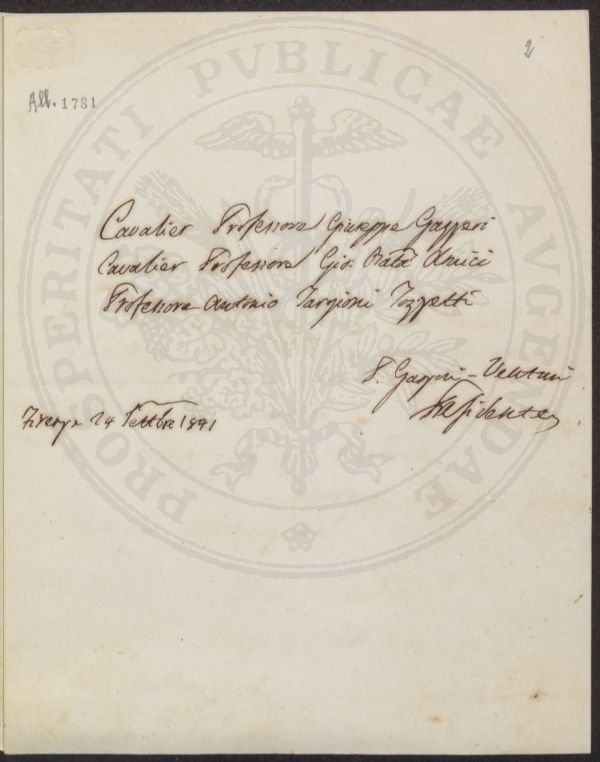 2
All. 1781
PROSPERITATI PVBLICAE AVGENDAE
Cavalier Professore Giuseppe Gazzeri
Cavalier Professore Gio: Bata Amici
Professore Antonio Targioni Tozzetti
Presidente
Firenze 24 Settbre 1841